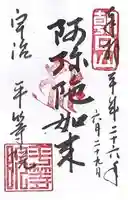 平成二十六年
六月二十九日
阿弥陀如来
宇治 平等院